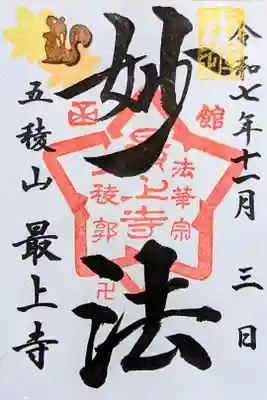 令和七年十一月三日
妙法
五稜山 最上寺
函館
法華宗
最上寺
五稜郭
卍